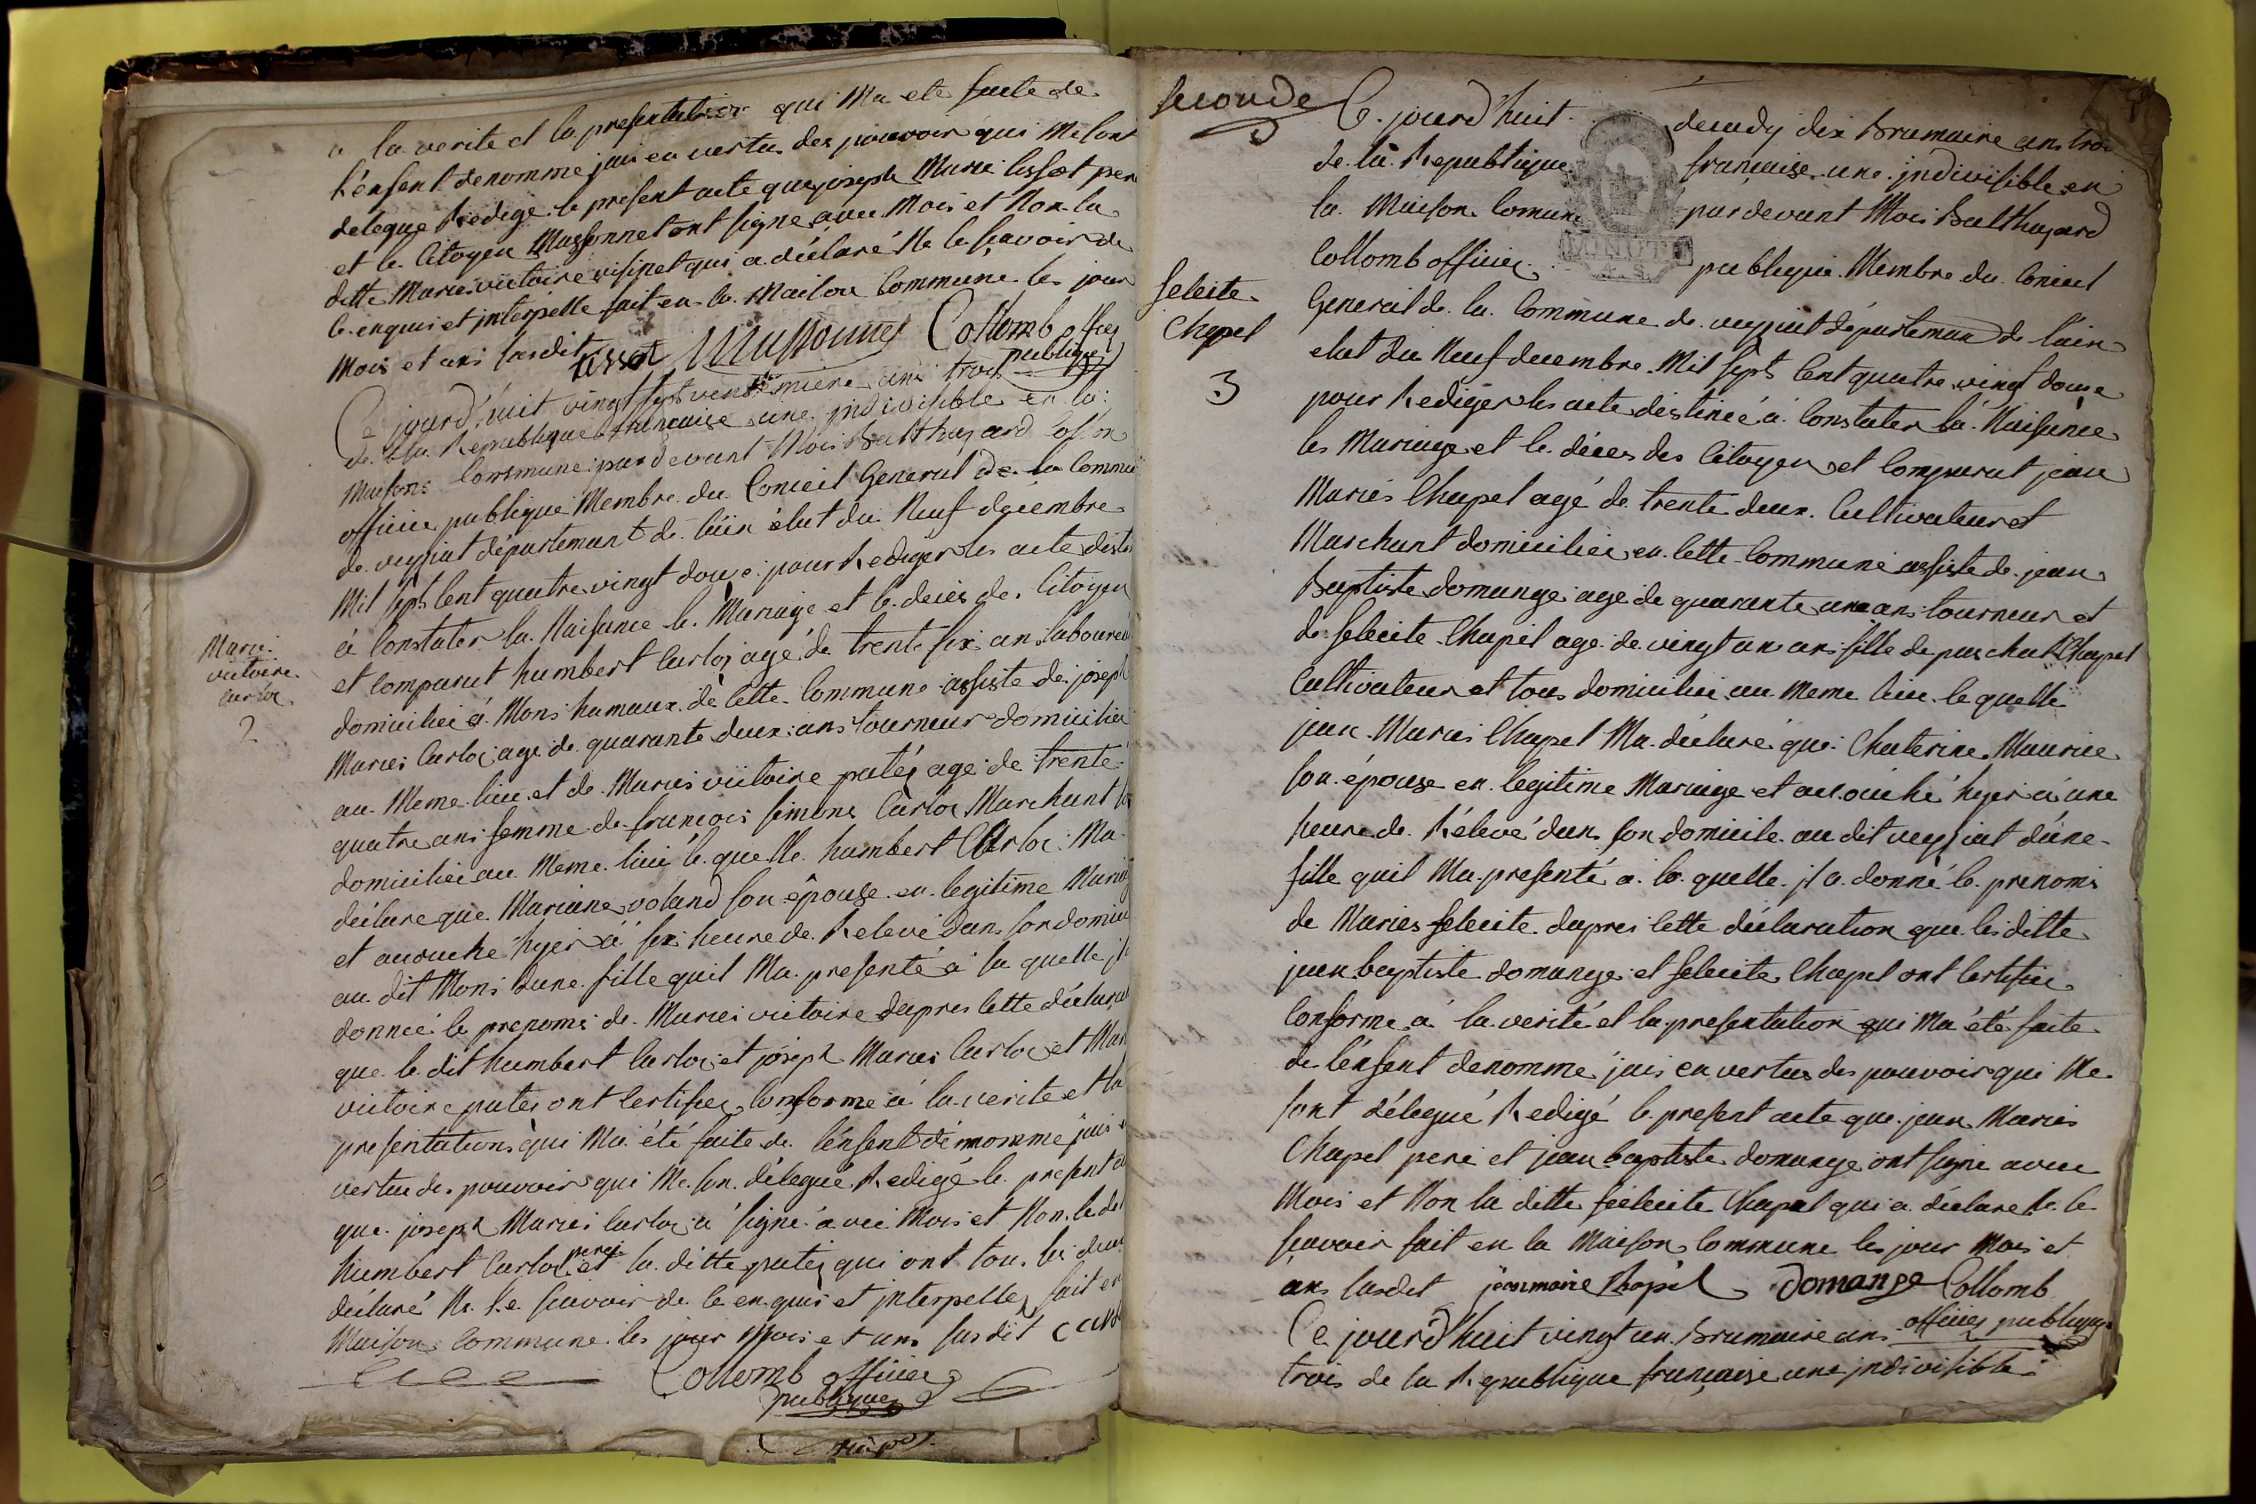 a la verite et la presentation qui Ma ete faite de
l'enfent denommé jais en vertus des pouvoir qui Me sont
delegue Redige le present acte que joseph Marie tissot pere
et le Citoyen Mussonnet ont signe avec Mois et Non la
ditte Maries victoire qui a déclaré Ne le sçavoir de
ce enquis et interpelle fait en la Maison Commune les jour
Mois et ans susdit tissot Mussonnet Collomb officier
publique
Ce jourd'huit vingt sept vendemiere ans trois
de la Republique francaise une indivisible en la
Maisons Commune pardevant Mois Balthazard Collomb
officier publique Membre du Conseil General de la Commune
de veyziat département de l'ain élut du Neuf décembre
Mil sept Cent quatre vingt douze pour Rediger les acte destiné
à Constater la Naisance le Mariage et le deces des Citoyen
et Comparut humbert Carloz agé de trente six ans laboureur
Marie
victoire
Carloz
2
domicilier à Mons hamaux de Cette Commune assiste de joseph
Maries Carloz age de quarante deux ans tourneur domicilier
au Meme lieu et de Maries victoire patéz age de trente
quatre ans femme de francois simons Carloz Marchant
domicilier au Meme lieu le quelle humbert Carloz Ma
déclare que Mariane voland son épouse en legitime Mariage
et acouche hyer à six heure de Relevé dans son domicile
au dit Mons dune fille quil Ma presenté à la quelle il
donnée le prenoms de Maries victoire dapres Cette déclaration
que le dit humbert Carloz et joseph Maries Carloz et Maries
victoire patez ont Certifier Conforme à la verite et la
presentations qui Ma été faite de l'enfent dénommé jais en
vertu des pouvoir qui Me son délegué Redigé le present acte
que joseph Maries Carloz a signé avec Mois et Non le dit
humbert Carloz pere et la ditte patéz qui ont tous les deux
déclaré Ne le sçavoir de ce enquis et interpelle fait en
Maisons Commune les jour Mois et ans susdit
Collomb officier
publique
seconde
Ce jourd'huit decady dix Brumaire ans trois
de la Republique française une indivisible en
la Maison Comune pardevant Mois Balthazard
MINUTE
Collomb officier publique Membre du Conseil
felicite
Chapel
3
General de la Commune de veyziat département de l'ain
elut du Neuf decembre Mil sept Cent quatre vingt douze
pour Rediger les acte destinée à Constater la Naisance
les Mariage et le déces des Citoyen et Comparut jean
Maries Chapel agé de trente deux Cultivateur et
Marchant domicilier en Cette Commune assiste de jean
Baptiste domange age de quarante un ans tourneur et
de felicite Chapel age de vingt un ans fille de paschal Chapel
Cultivateur et tous domicilier au Meme lieu le quelle
jean Maries Chapel Ma déclaré que Chaterine Maurice
son épouse en legitime Mariage et acouché hyer à une
heure de Relevé dans son domicile au dit veyziat dune
fille quil Ma presenté à la quelle il a donné le prenoms
de Maries felicite dapres Cette déclaration que les ditte
jean baptiste domange et felicite Chapel ont Certifier
Conforme à la verité et la presentation qui Ma été faite
de l'enfent denommé jais en vertus des pouvoir qui Me
sont délegué Redigé le present acte que jean Maries
Chapel pere et jean baptiste domange ont signe avec
Mois et Non la ditte felicite Chapel qui a déclare Ne le
sçavoir fait en la Maison Commune les jour Mois et
ans susdit jean marie Chapel Domange Collomb
officier publique
Ce jourd'huit vingt un Brumaire ans
trois de la Republique française une indivisible